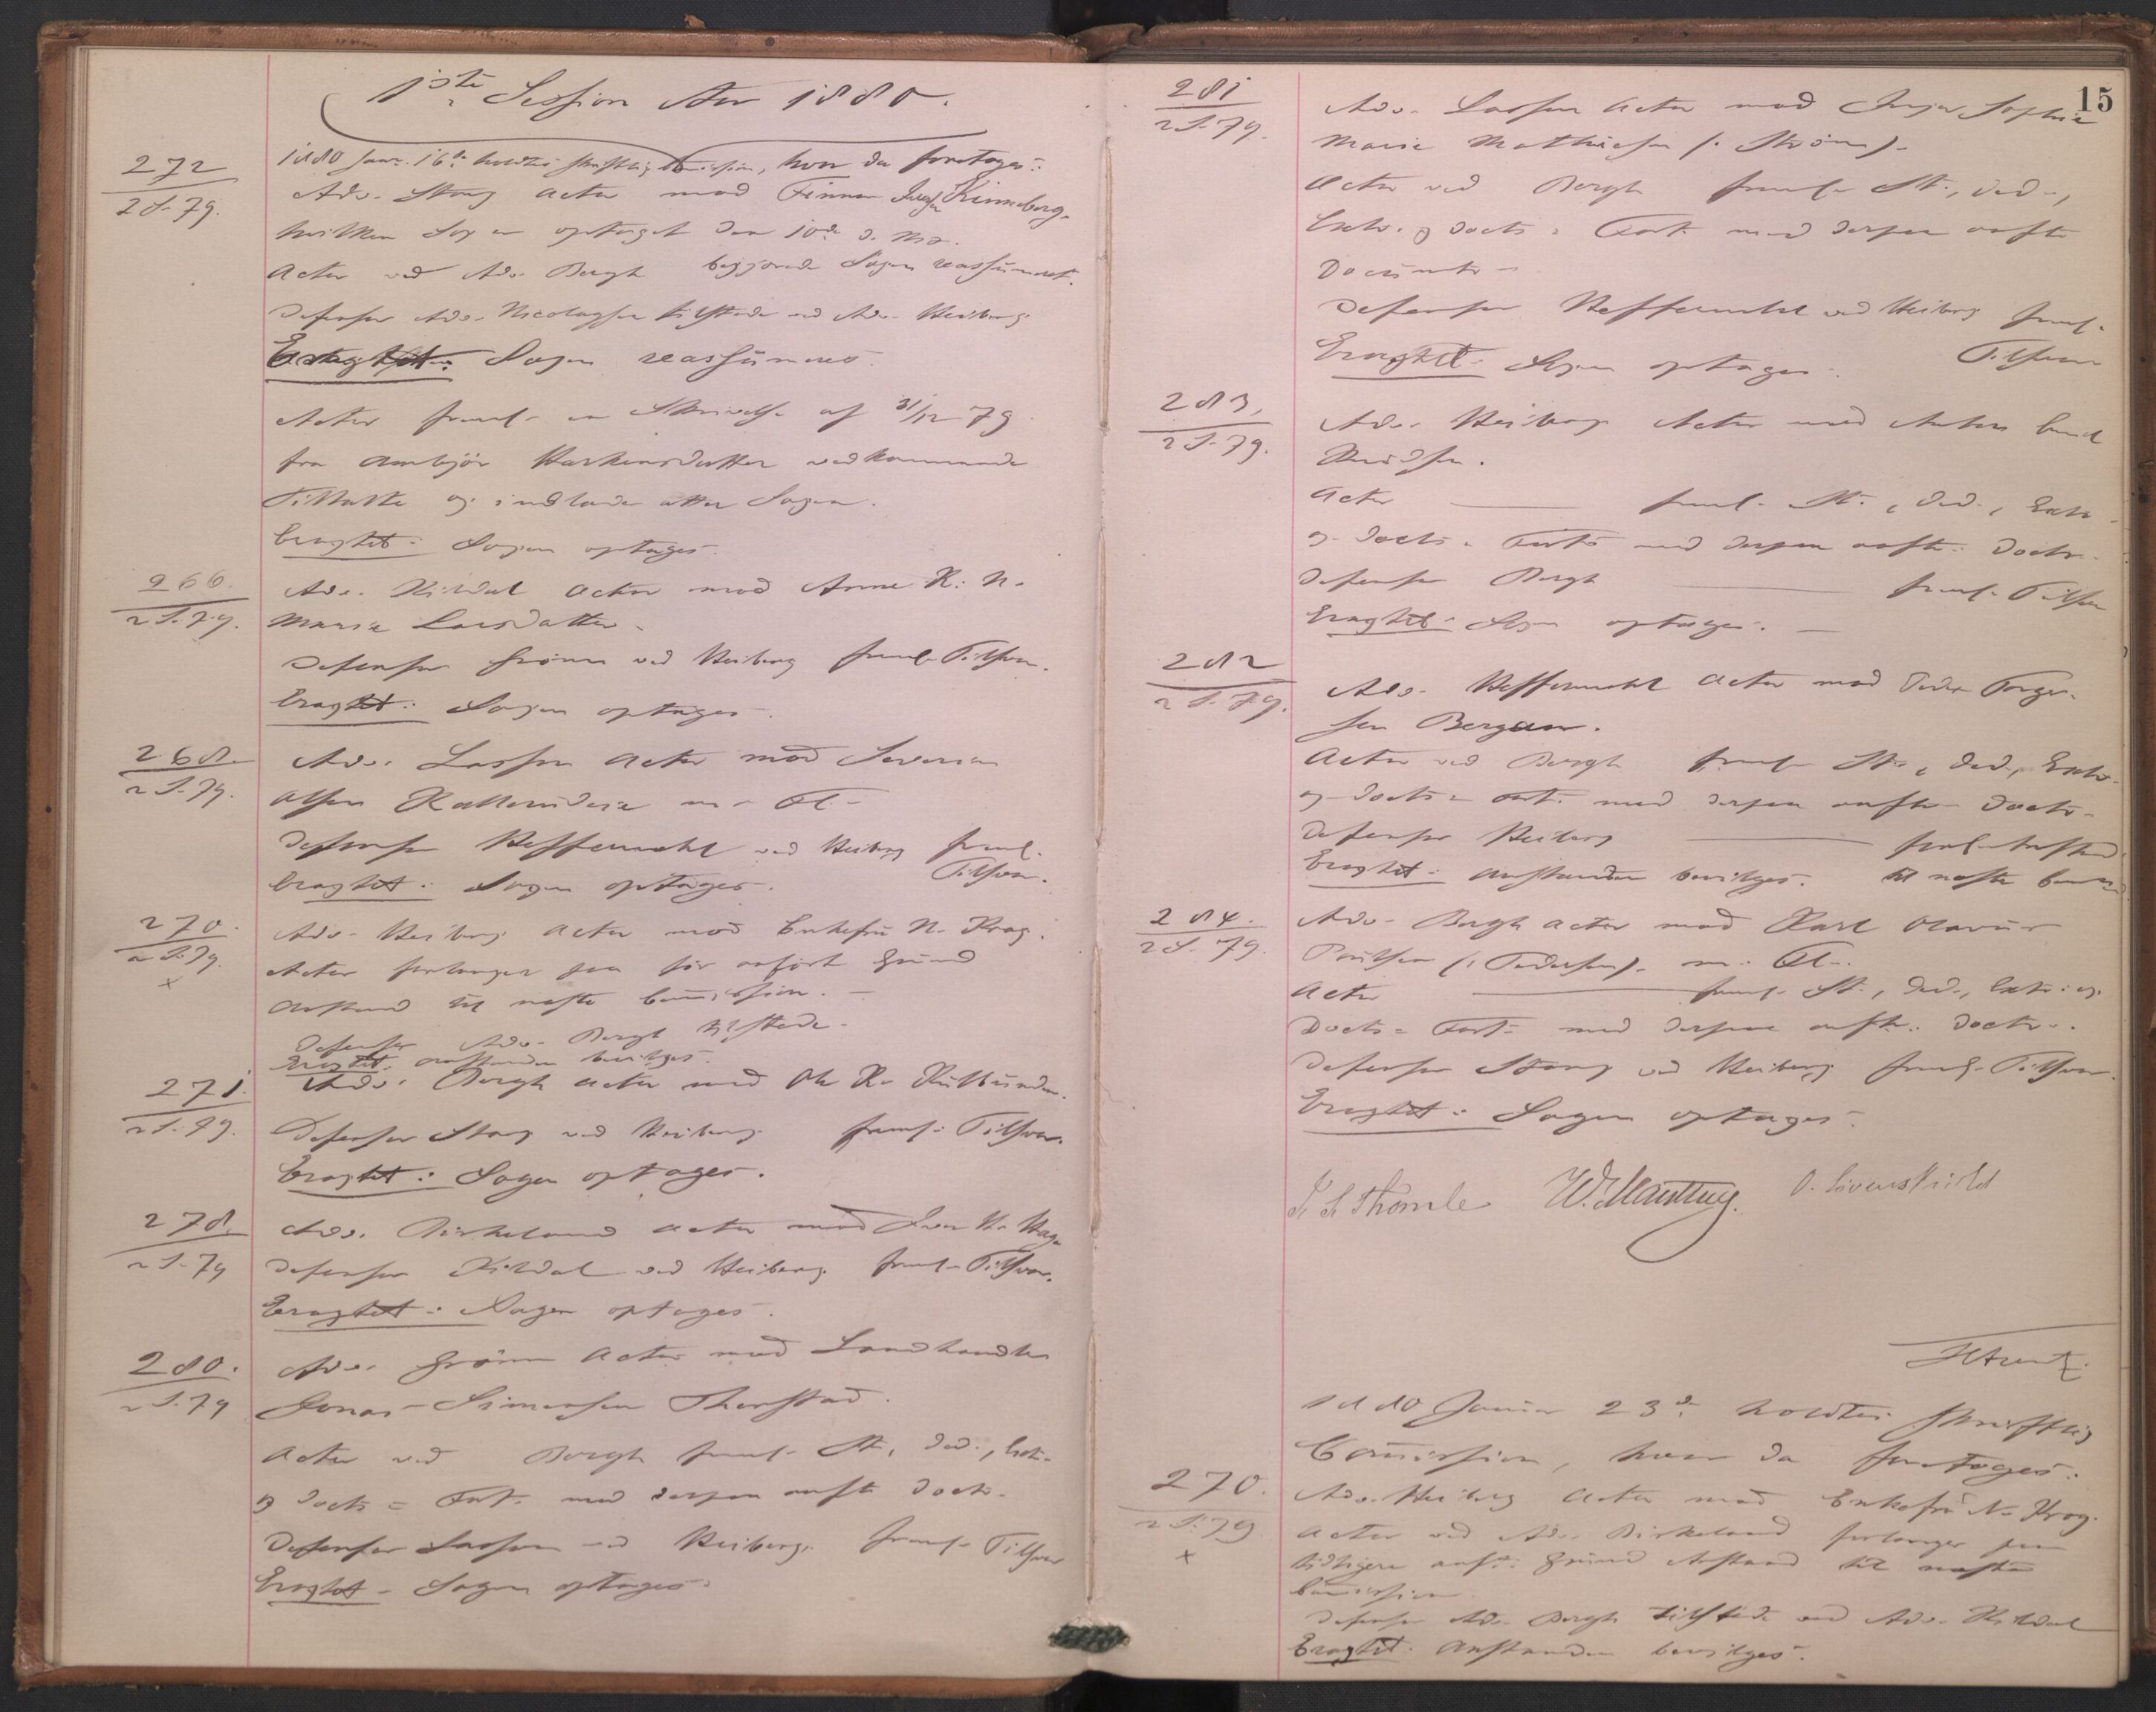 1ste Session Aar 1880.
272
2 S. 79.
1880 Janr. 16de holdtes skriftlig Commission, hvor da foretoges:
Adv. Stang Actor mod Finnen Kinneberg
hvilken Sag er optaget den 10de d. M.
Actor ved Adv. Bergh begjærede Sagen reassumeret.
Defensor Adv. Nicolaysen tilstede ved Adv. Heiberg
Eragtet: Sagen reassumeres.
Actor freml. en Skrivelse af 31/12 79
fra Ambjör vedkommende
Tiltalte og indlader atter Sagen.
Eragtet: Sagen optages.
266.
2 S. 79.
Adv. Kildal Actor mod Anne K. N.
Marie Larsdatter.
Defensor Grönn ved Heiberg freml. Tilsvar.
Eragtet: Sagen optages.
268.
2 S. 79.
Adv. Lassen Actor mod Severin
Olsen m. Fl.
Defensor Heffermehl ved Heiberg freml.
Tilsvar.
Eragtet: Sagen optages.
270.
2 S. 79.
x
Adv. Heiberg Actor mod Enkefru N. Krog.
Actor forlanger paa før anført Grund
Anstand til næste Commission.
Defensor Adv. Bergh tilstede.
Eragtet: Anstanden bevilges.
271.
2 S. 79.
Adv. Bergh Actor mod Ole K.
Defensor Stang ved Heiberg freml. Tilsvar.
Eragtet: Sagen optages.
278.
2 S. 79
Adv. Birkeland Actor mod Iver H. Hage
Defensor Kildal ved Heiberg freml. Tilsvar.
Eragtet: Sagen optages.
280.
2 S. 79
Adv. Grönn Actor mod Landhandler
Jonas Simonsen Thorstad.
Actor ved Bergh freml. St., Ded., Extr.
og Docts = Fort. med derpaa anfte Doctr.
Defensor Lassen ved Heiberg freml. Tilsvar
Eragtet: Sagen optages.
15
281
2 S. 79.
Adv. Lassen Actor mod Inger Sophie
Marie Mathiesen (: Ström).
Actor ved Bergh freml. St., Ded.,
Extr. og Docts = Fort. med derpaa anfte
Documtr.
Defensor Heffermehl ved Heiberg freml.
Tilsvar
Eragtet: Sagen optages.
283.
2 S. 79.
Adv. Heiberg Actor mod Anders
Knudsen.
Actor freml. St., Ded., Extr.
og Docts = Forts med derpaa anfte Doctr.
Defensor Bergh freml. Tilsvar
Eragtet: Sagen optages.
282
2 S. 79.
Adv. Heffermehl Actor mod Peder Torger-
sen Bergan.
Actor ved Bergh freml. St., Ded., Extr.
og Docts = Fort. med derpaa anfte Doctr.
Defensor Heiberg forl. Anstand.
Eragtet: Anstanden bevilges. til næste Comm.
284.
2 S. 79.
Adv. Bergh Actor mod Karl Olavus
Poulsen (: Pedersen). m. Fl.
Actor freml. St., Ded., Extr. og
Docts = Fort. med derpaa anfte Doctr.
Defensor Stang ved Heiberg freml. Tilsvar.
Eragtet: Sagen optages.
Thomle W. Manthey. O. Lövenskiold
1880 Januar 23de holdtes skriftlig
Commission, hvor da foretoges:
270.
2 S. 79.
x
Adv. Heiberg Actor mod Enkefru N. Krog.
Actor ved Adv. Birkeland forlanger paa
tidligere anft. Grund Anstand til næste
Commission
Defensor Adv. Bergh tilstede ved Adv. Kildal
Eragtet: Anstanden bevilges.